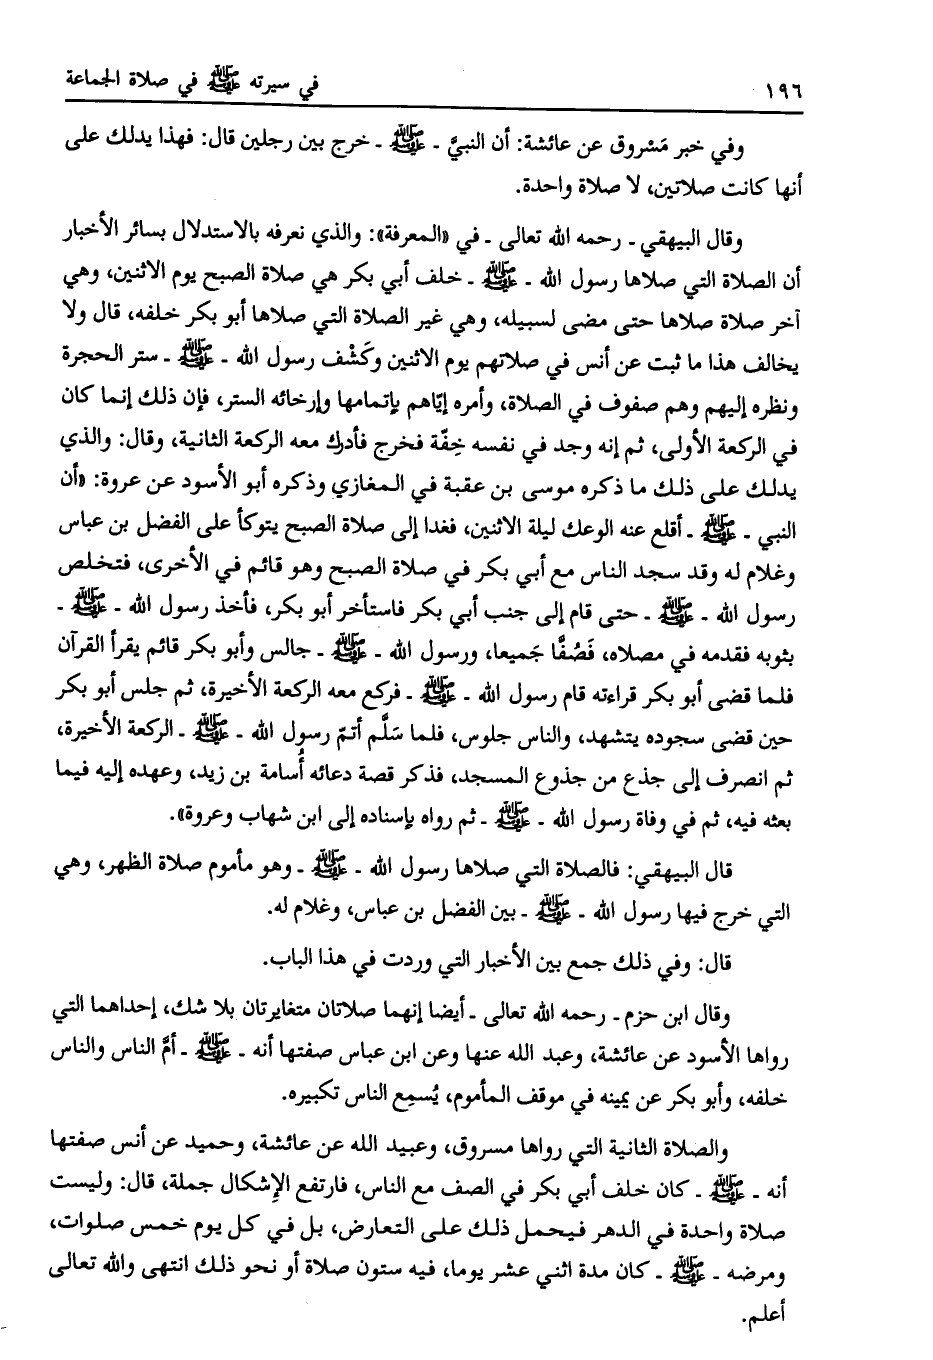 ١٩٦
في سيرته ﷺ في صلاة الجماعة
وفي خبر مَسْروق عن عائشة: أن النبيَّ ـ ﷺ ـ خرج بين رجلين قال: فهذا يدلك على
أنها كانت صلاتين، لا صلاة واحدة.
وقال البيهقي ـ رحمه الله تعالى ـ في «المعرفة»: والذي نعرفه بالاستدلال بسائر الأخبار
أن الصلاة التي صلاها رسول الله ـ ﷺ ـ خلف أبي بكر هي صلاة الصبح يوم الاثنين، وهي
آخر صلاة صلاها حتى مضى لسبيله، وهي غير الصلاة التي صلاها أبو بكر خلفه، قال ولا
يخالف هذا ما ثبت عن أنس في صلاتهم يوم الاثنين وكَشْف رسول الله ـ ﷺ ـ ستر الحجرة
ونظره إليهم وهم صفوف في الصلاة، وأمره إيّاهم بإتمامها وإرخائه الستر، فإن ذلك إنما كان
في الركعة الأولى، ثم إنه وجد في نفسه خِفّة فخرج فأدرك معه الركعة الثانية، وقال: والذي
يدلك على ذلك ما ذكره موسى بن عقبة في المغازي وذكره أبو الأسود عن عروة: «أن
النبي ـ ﷺ ـ أقلع عنه الوعك ليلة الاثنين، فغدا إلى صلاة الصبح يتوكأ على الفضل بن عباس
وغلام له وقد سجد الناس مع أبي بكر في صلاة الصبح وهو قائم في الأخرى، فتخلص
رسول الله ـ ﷺ ـ حتى قام إلى جنب أبي بكر فاستأخر أبو بكر، فأخذ رسول الله ـ ﷺ ـ
بثوبه فقدمه في مصلاه، فَصُفَّا جَميعا، ورسول الله ـ ﷺ ـ جالس وأبو بكر قائم يقرأ القرآن
فلما قضى أبو بكر قراءته قام رسول الله ـ ﷺ ـ فركع معه الركعة الأخيرة، ثم جلس أبو بكر
حين قضى سجوده يتشهد، والناس جلوس، فلما سَلَّم أتمّ رسول الله ـ ﷺ ـ الركعة الأخيرة،
ثم انصرف إلى جذع من جذوع المسجد، فذكر قصة دعائه أُسامة بن زيد، وعهده إليه فيما
بعثه فيه، ثم في وفاة رسول الله ـ ﷺ ـ ثم رواه بإسناده إلى ابن شهاب وعروة».
قال البيهقي: فالصلاة التي صلاها رسول الله ـ ﷺ ـ وهو مأموم صلاة الظهر، وهي
التي خرج فيها رسول الله ـ ﷺ ـ بين الفضل بن عباس، وغلام له.
قال: وفي ذلك جمع بين الأخبار التي وردت في هذا الباب.
وقال ابن حزم ـ رحمه الله تعالى ـ أيضا إنهما صلاتان متغايرتان بلا شك، إحداهما التي
رواها الأسود عن عائشة، وعبد الله عنها وعن ابن عباس صفتها أنه ـ ﷺ ـ أمَّ الناس والناس
خلفه، وأبو بكر عن يمينه في موقف المأموم، يُسمِع الناس تكبيره.
والصلاة الثانية التي رواها مسروق، وعبيد الله عن عائشة، وحميد عن أنس صفتها
أنه ـ ﷺ ـ كان خلف أبي بكر في الصف مع الناس، فارتفع الإشكال جملة، قال: وليست
صلاة واحدة في الدهر فيحمل ذلك على التعارض، بل في كل يوم خمس صلوات،
ومرضه ـ ﷺ ـ كان مدة اثني عشر يوما، فيه ستون صلاة أو نحو ذلك انتهى والله تعالى
أعلم.